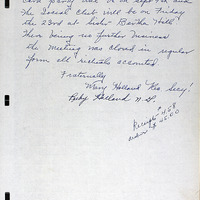 card party will be on Sept 19 and
the Social Club will be on Friday
the 23rd at Sister Bertha Hall
There being no further business
the Meeting was closed in regular
form all rituals accounted.
Fraternally
Mary Holland Rec Secy!
Ruby Holland N. G.
Receipts 4.58